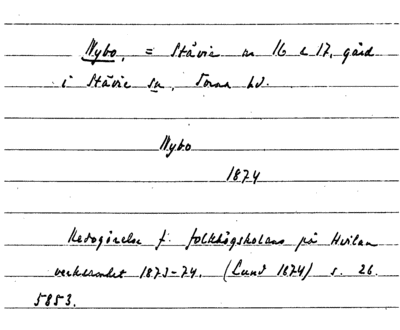 Nybo, = Stävie nr 16 & 17, gård
i Stävie sn, Torna hd.
Nybo
1874
Redogörelse f. folkhögskolans på Hvilan
verksamhet 1873-74. (Lund 1874) s. 26.
5853.